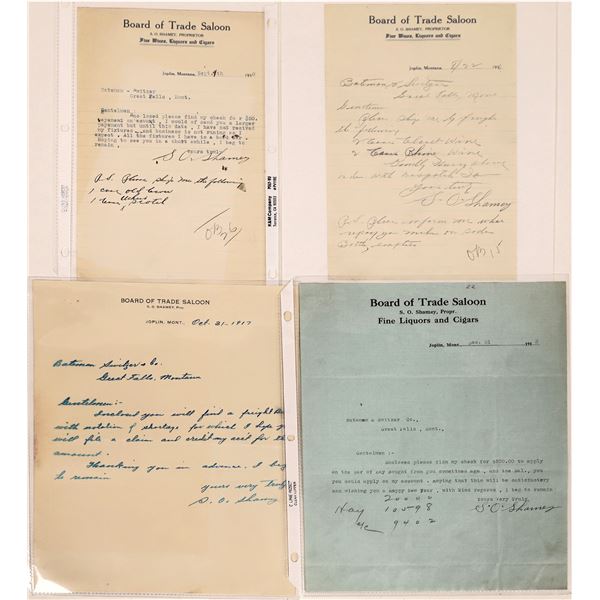 Board of Trade Saloon
S. O. SHAMEY, PROPRIETOR
Fine Wines, Liquors and Cigars
Joplin, Montana, Sept 9th 191
Bateman - Switzer
Great Falls, Mont.
Gentelman
closed please find my check for
on account, I would of send you a larger
payment but until this date, I have not received
my fixtures, and business is not runing as I
expect. All the fixtures I have is a back bar
Hoping to see you in a short while, I beg to
remain,
yours truly
S. O. Shamey
P.S. Please ship me the following
1 case old Crow
1 case White Scotch
Board of Trade Saloon
S. O. SHAMEY, PROPRIETOR
Fine Wines, Liquors and Cigars
Joplin, Montana, 8/22 191
Bateman & Switzer
Great Falls, Mont
Gentlem
Please ship me by freight
the following
2 Cases Claret Wine
2 Cases Rhine Wine
Yours truly
S. O. Shamey
P.S. Please inform me what
you make on soda
Bottle
BOARD OF TRADE SALOON
S. O. SHAMEY, Pro.
JOPLIN, MONT., Oct. 31-1917
Bateman Switzer & Co.
Great Falls, Montana
Gentelmen:-
Inclosed you will find a freight
with notation of shortage for which I hope you
will file a claim and credit my acct for the
amount.
Thanking you in advance. I beg
to remain
yours very truly
S. O. Shamey
C-LINE 62027
22
Board of Trade Saloon
S. O. Shamey, Propr.
Fine Liquors and Cigars
Joplin, Mont., Dec. 31 191
Bateman & Switzer Co.,
Great Falls, Mont.,
Gentelman :-
Enclosed please find my check for $200.00 to apply
on the car of hay bought from you sometimes ago, and the bal., you
you could apply on my account. Hoping that this will be satisfactory
and wishing you a happy New Year, with kind regards, I beg to remain
yours very truly,
S. O. Shamey
200 00
Hay 105 98
a/c 94 02